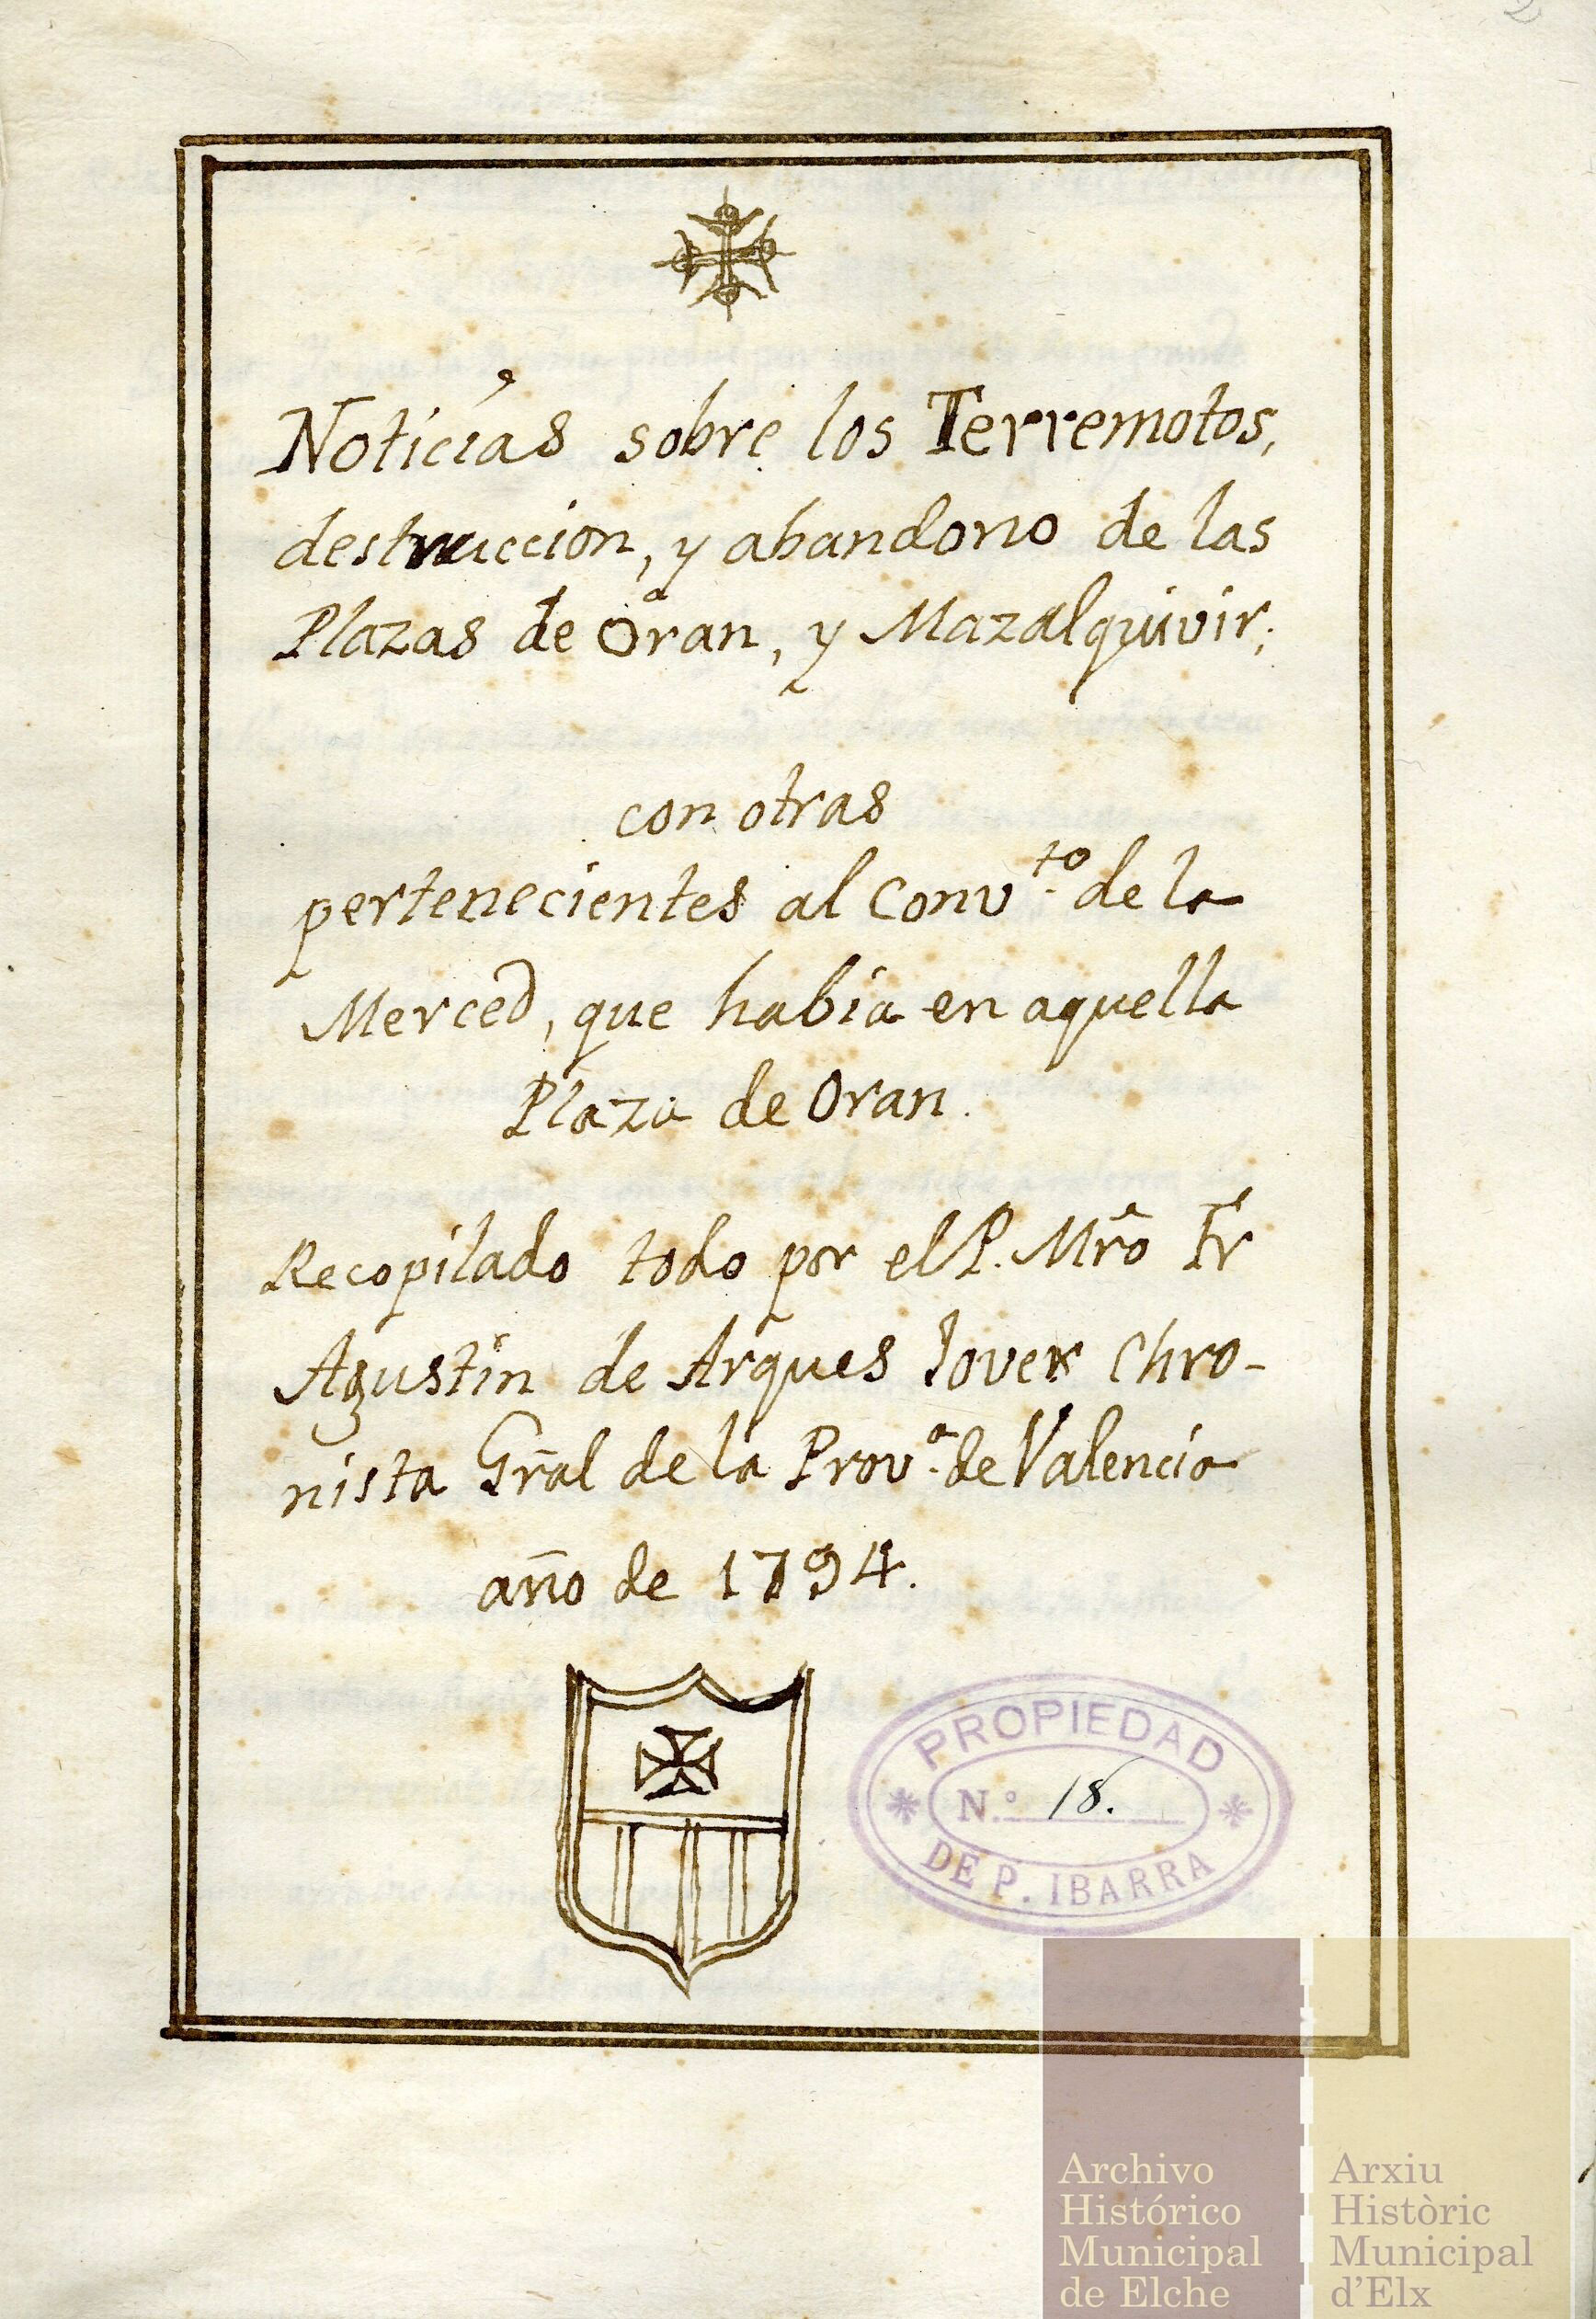 2
Noticias sobre los Terremotos,
destruccion, y abandono de las
Plazas de Oran, y Mazalquivir;
con otras
pertenecientes al Conv.to de la
Merced, que habia en aquella
Plaza de Oran.
Recopilado todo por el P. Mro Fr
Agustin de Arques Jover Chro-
nista Gral de la Prov.a de Valencia
año de 1794.
PROPIEDAD
N.o 18.
DE P. IBARRA
Archivo
Histórico
Municipal
de Elche
Arxiu
Històric
Municipal
d'Elx